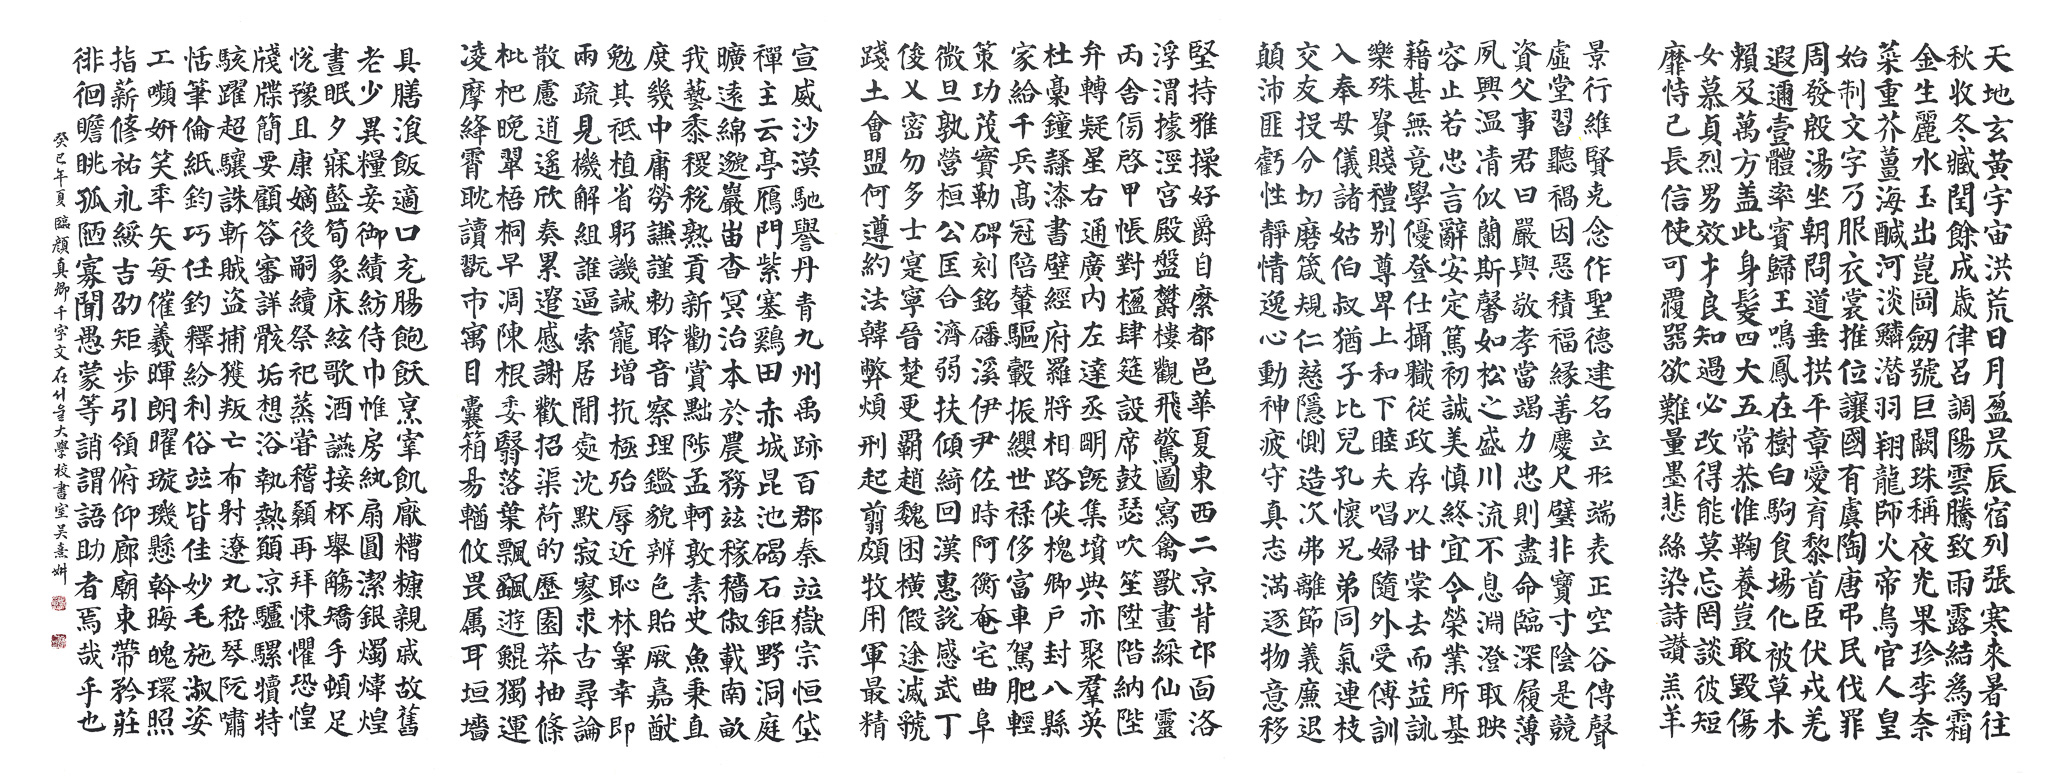 天地玄黃宇宙洪荒日月盈昃辰宿列張寒來暑往
秋收冬藏閏餘成歲律呂調陽雲騰致雨露結為霜
金生麗水玉出崑岡劒號巨闕珠稱夜光果珍李柰
菜重芥薑海醎河淡鱗潛羽翔龍師火帝鳥官人皇
始制文字乃服衣裳推位讓國有虞陶唐弔民伐罪
周發殷湯坐朝問道垂拱平章愛育黎首臣伏戎羌
遐邇壹體率賓歸王鳴鳳在樹白駒食場化被草木
賴及萬方盖此身髮四大五常恭惟鞠養豈敢毀傷
女慕貞烈男效才良知過必改得能莫忘罔談彼短
靡恃己長信使可覆器欲難量墨悲絲染詩讚羔羊
景行維賢克念作聖德建名立形端表正空谷傳聲
虛堂習聽禍因惡積福緣善慶尺璧非寶寸陰是競
資父事君曰嚴與敬孝當竭力忠則盡命臨深履薄
夙興溫凊似蘭斯馨如松之盛川流不息淵澄取映
容止若忠言辭安定篤初誠美慎終宜令榮業所基
藉甚無竟學優登仕攝職從政存以甘棠去而益詠
樂殊貴賤禮別尊卑上和下睦夫唱婦隨外受傅訓
入奉母儀諸姑伯叔猶子比兒孔懷兄弟同氣連枝
交友投分切磨箴規仁慈隱惻造次弗離節義廉退
顛沛匪虧性靜情逸心動神疲守真志滿逐物意移
堅持雅操好爵自縻都邑華夏東西二京背邙面洛
浮渭據涇宮殿盤欝樓觀飛驚圖寫禽獸畫綵仙靈
丙舍傍啓甲帳對楹肆筵設席鼓瑟吹笙陞階納陛
弁轉疑星右通廣內左達丞明既集墳典亦聚羣英
杜稾鐘隸漆書壁經府羅將相路俠槐卿戶封八縣
家給千兵高冠陪輦驅轂振纓世祿侈富車駕肥輕
策功茂實勒碑刻銘磻溪伊尹佐時阿衡奄宅曲阜
微旦孰營桓公匡合濟弱扶傾綺回漢惠說感武丁
俊乂密勿多士寔寧晉楚更霸趙魏困橫假途滅虢
踐土會盟何遵約法韓弊煩刑起翦頗牧用軍最精
宣威沙漠馳譽丹青九州禹跡百郡秦竝嶽宗恒岱
禪主云亭鴈門紫塞鷄田赤城昆池碣石鉅野洞庭
曠遠綿邈巖岫杳冥治本於農務茲稼穡俶載南畝
我藝黍稷稅熟貢新勸賞黜陟孟軻敦素史魚秉直
庶幾中庸勞謙謹勅聆音察理鑑貌辨色貽厥嘉猷
勉其祗植省躬譏誡寵增抗極殆辱近恥林皋幸即
兩疏見機解組誰逼索居閒處沈默寂寥求古尋論
散慮逍遙欣奏累遣慼謝歡招渠荷的歷園莽抽條
枇杷晚翠梧桐早凋陳根委翳落葉飄颻遊鯤獨運
凌摩絳霄耽讀翫市寓目囊箱易輶攸畏属耳垣墻
具膳湌飯適口充腸飽飫烹宰飢厭糟糠親戚故舊
老少異糧妾御績紡侍巾帷房紈扇圓潔銀燭煒煌
晝眠夕寐藍筍象床絃歌酒讌接杯舉觴矯手頓足
悅豫且康嫡後嗣續祭祀蒸甞稽顙再拜悚懼恐惶
牋牒簡要顧答審詳骸垢想浴執熱願凉驢騾犢特
駭躍超驤誅斬賊盗捕獲叛亡布射遼丸嵇琴阮嘯
恬筆倫紙鈞巧任釣釋紛利俗竝皆佳妙毛施淑姿
工嚬妍笑年矢每催羲暉朗曜璇璣懸斡晦魄環照
指薪修祜永綏吉劭矩步引領俯仰廊廟束帶矜莊
徘徊瞻眺孤陋寡聞愚蒙等誚謂語助者焉哉乎也
癸巳年夏臨顏真卿千字文在서울大學校書室吳